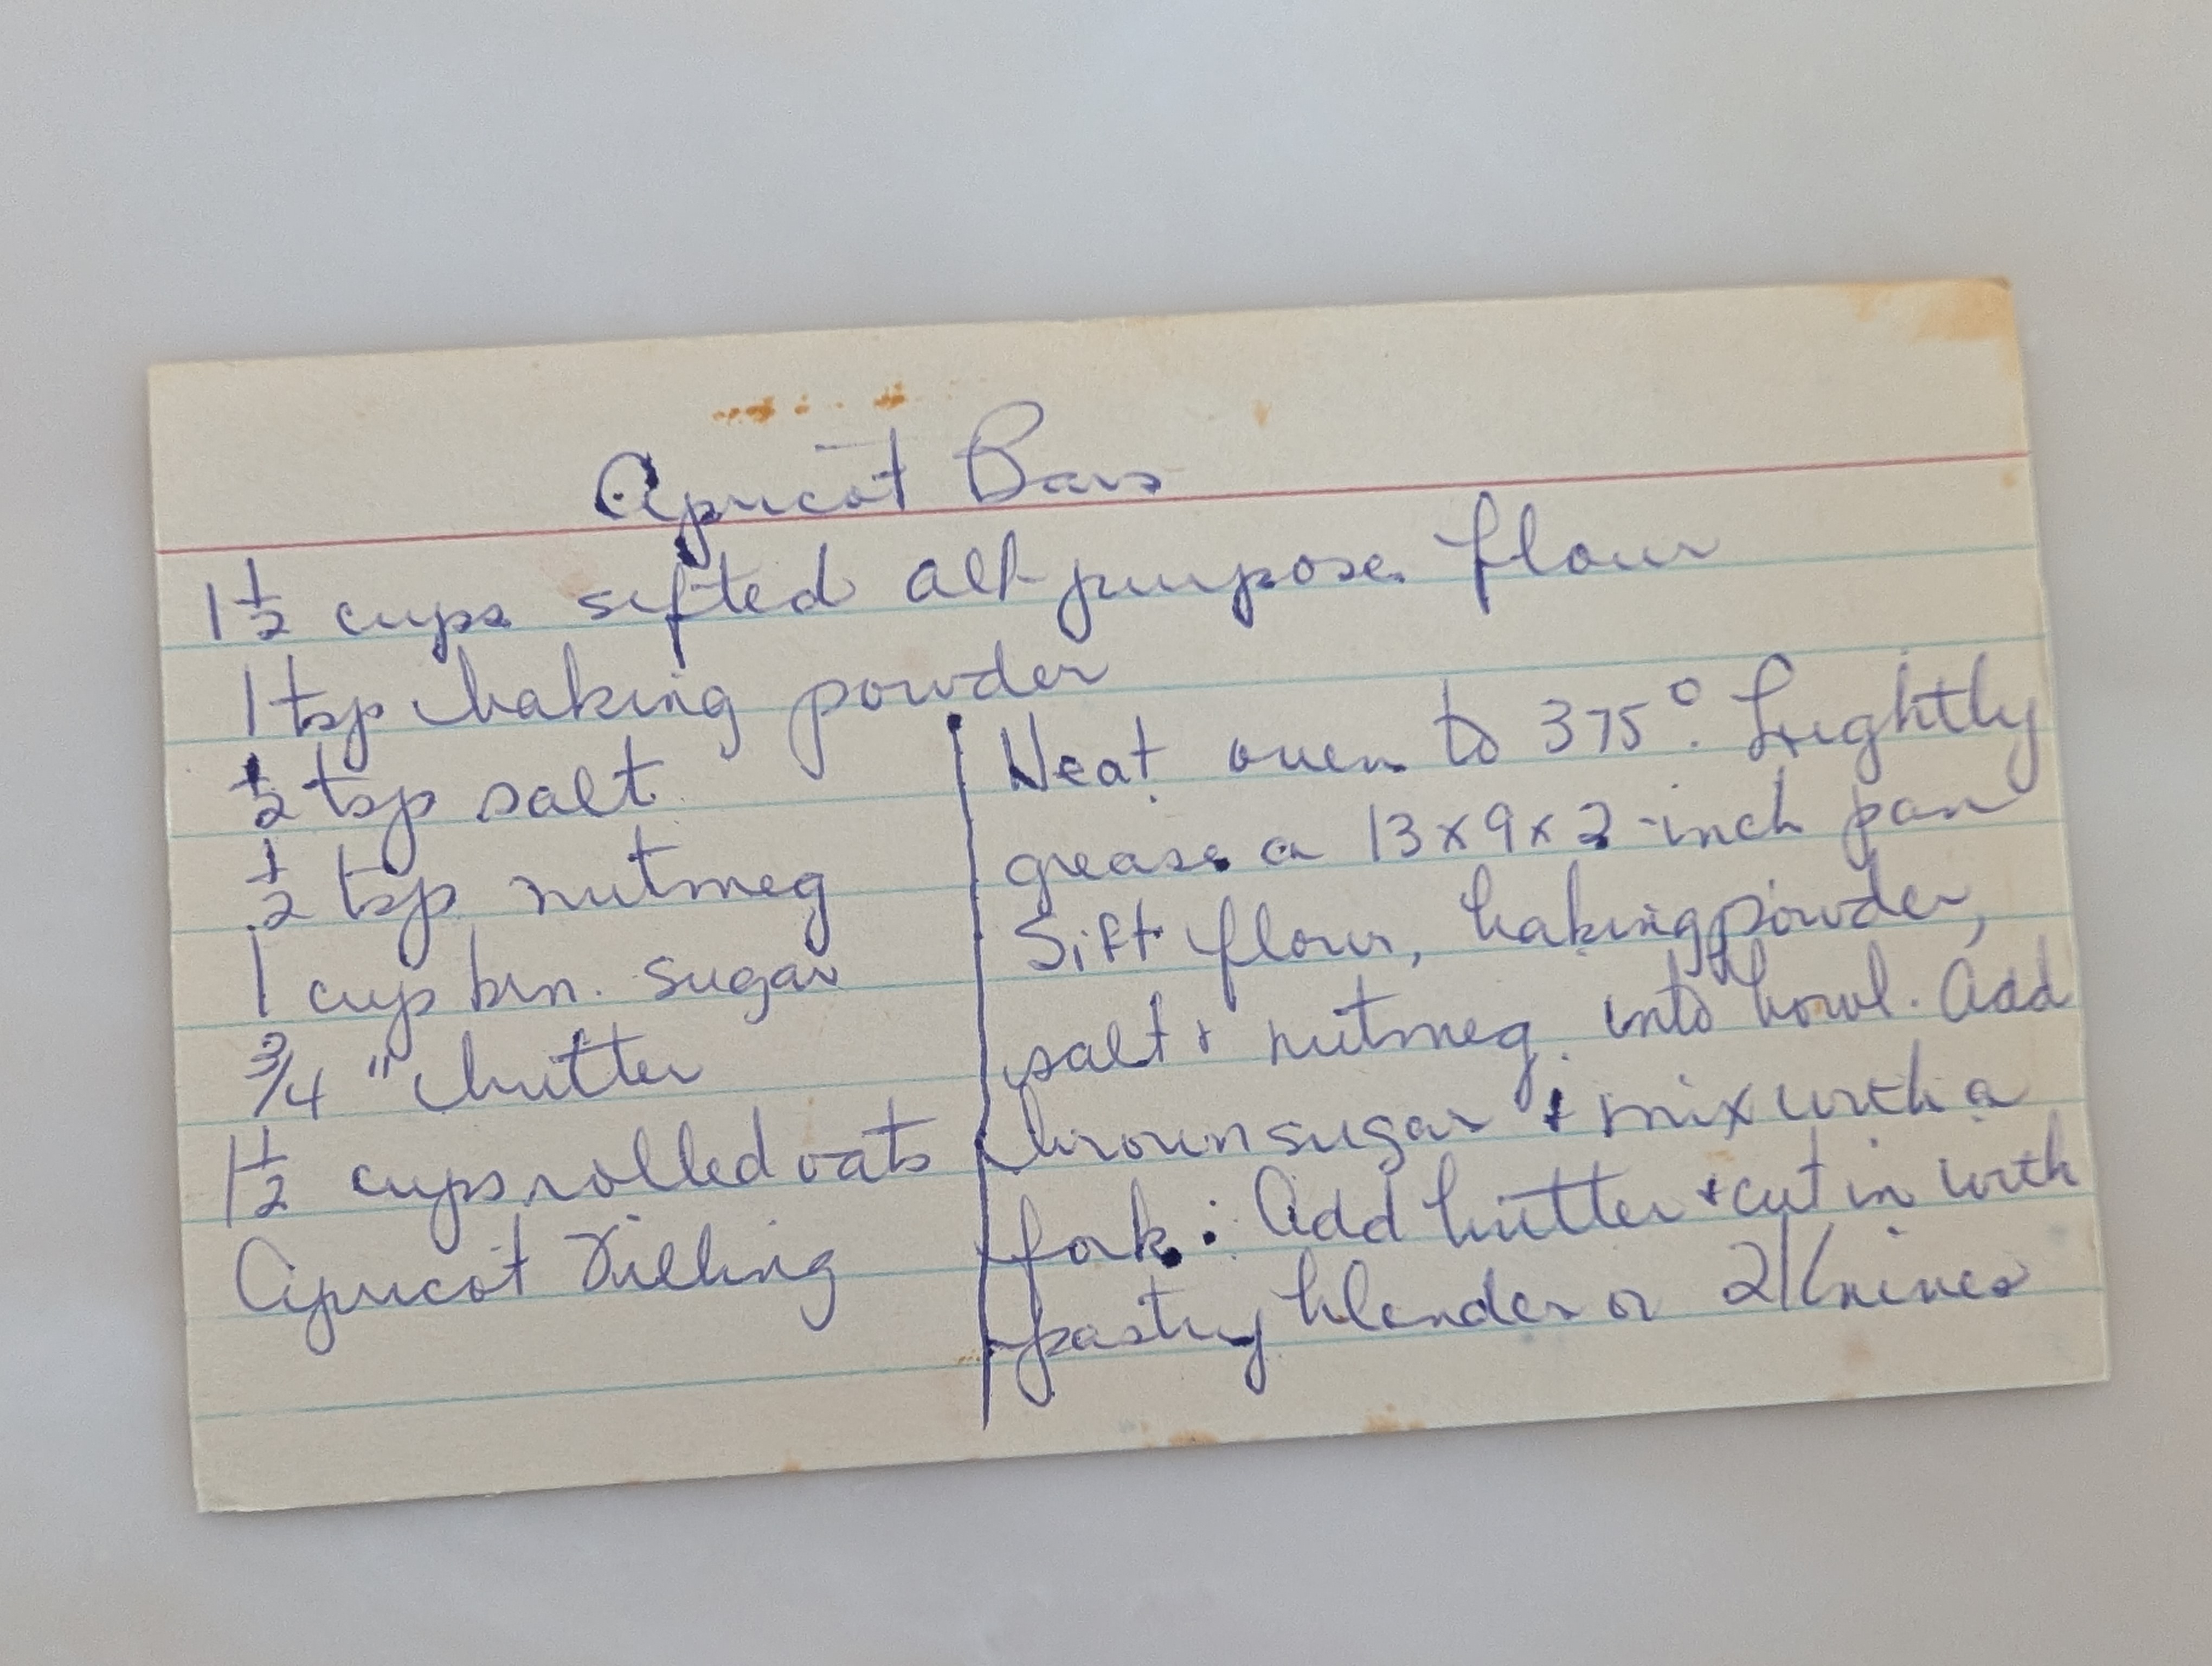 Apricot Bars
1 1/2 cups sifted all-purpose flour
1 tsp baking powder
1/2 tsp salt
1/2 tsp nutmeg
1 cup brn. sugar
3/4 " butter
1 1/2 cups rolled oats
Apricot Filling
Heat oven to 375°. Lightly
grease a 13 x 9 x 2-inch pan
Sift flour, baking powder,
salt + nutmeg into bowl. Add
brown sugar + mix with a
fork. Add butter + cut in with
pastry blender or 2 Knives